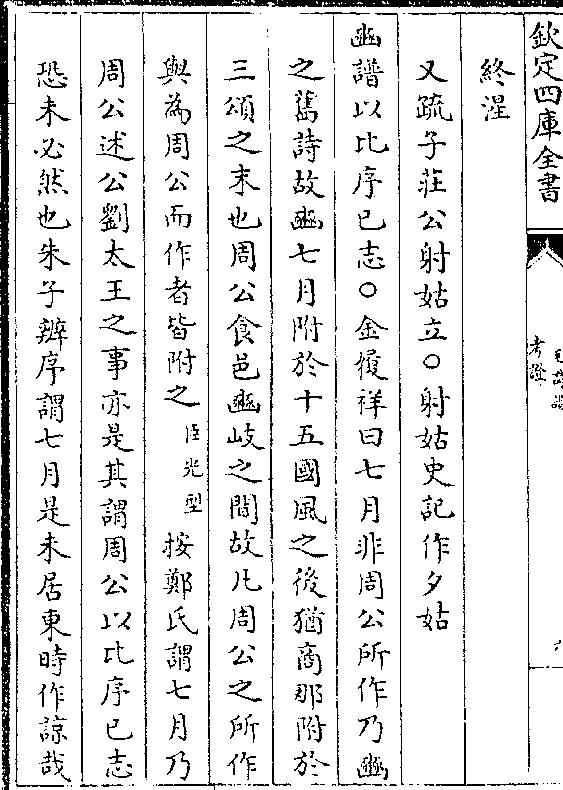 欽定四庫全書
毛詩譜
考證
六
終湼
又疏子莊公射姑立○射姑史記作夕姑
豳譜以比序已志○金履祥曰七月非周公所作乃豳
之舊詩故豳七月附於十五國風之後猶商那附於
三頌之末也周公食邑豳岐之間故凡周公之所作
與為周公而作者皆附之臣光型按鄭氏謂七月乃
周公述公劉太王之事亦是其謂周公以比序已志
恐未必然也朱子辨序謂七月是未居東時作諒哉